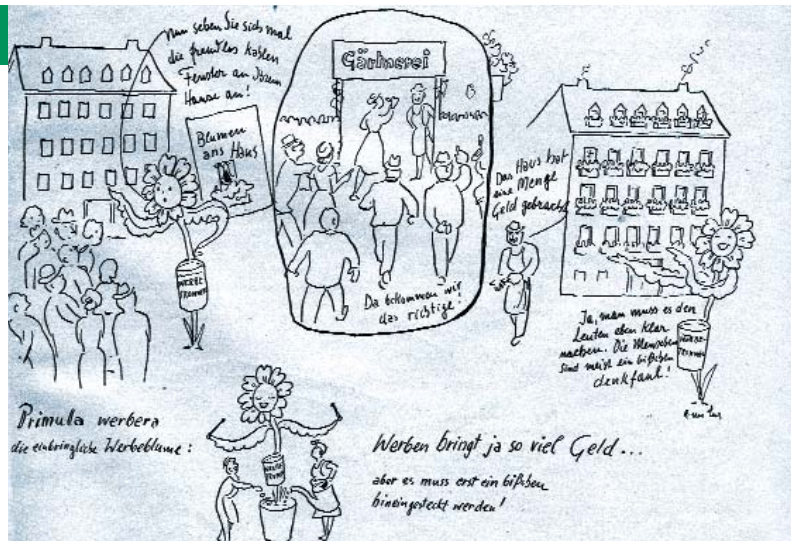 Nun sehen Sie sich mal
die freudlos kahlen
Fenster an Ihrem
Hause an!
Blumen
ans Haus
WERBE
TROMMEL
Gärtnerei
Da bekommen wir
das richtige!
Das Haus hat
eine Menge
Geld gebracht
Ja, man muss es den
Leuten eben klar
machen. Die Menschen
sind meist ein bißchen
denkfaul!
WERBE-
TROMMEL
Primula werbera
die einbringliche Werbeblume:
WERBE
TROMMEL
Werben bringt ja so viel Geld...
aber es muss erst ein bißchen
hineingesteckt werden!